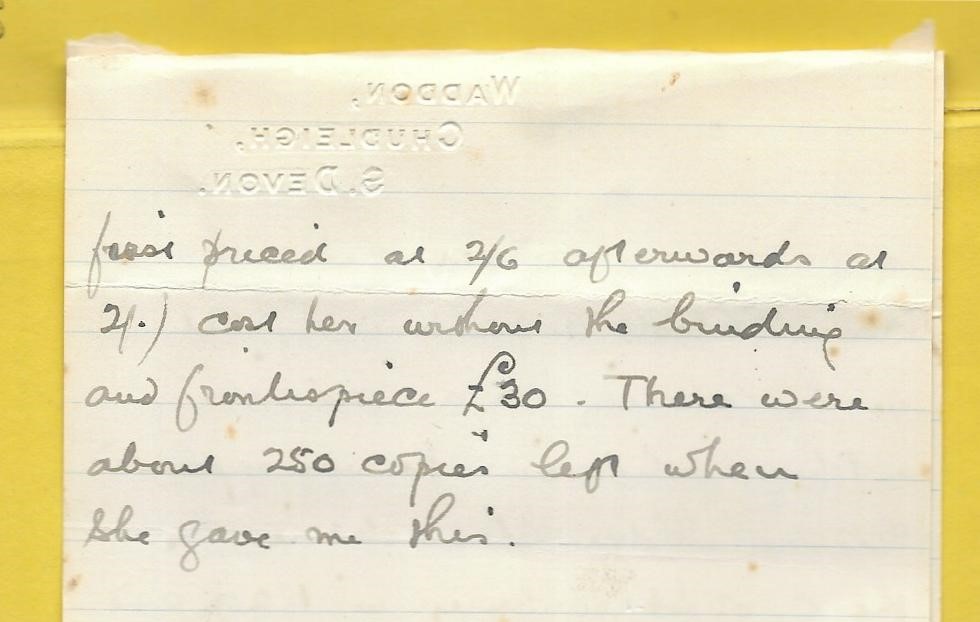 WADDON,
CHUDLEIGH,
S. DEVON.
first priced at 2/6 afterwards at
2/.) cost her without the binding
and frontispiece £30. There were
about 250 copies left when
she gave me this.